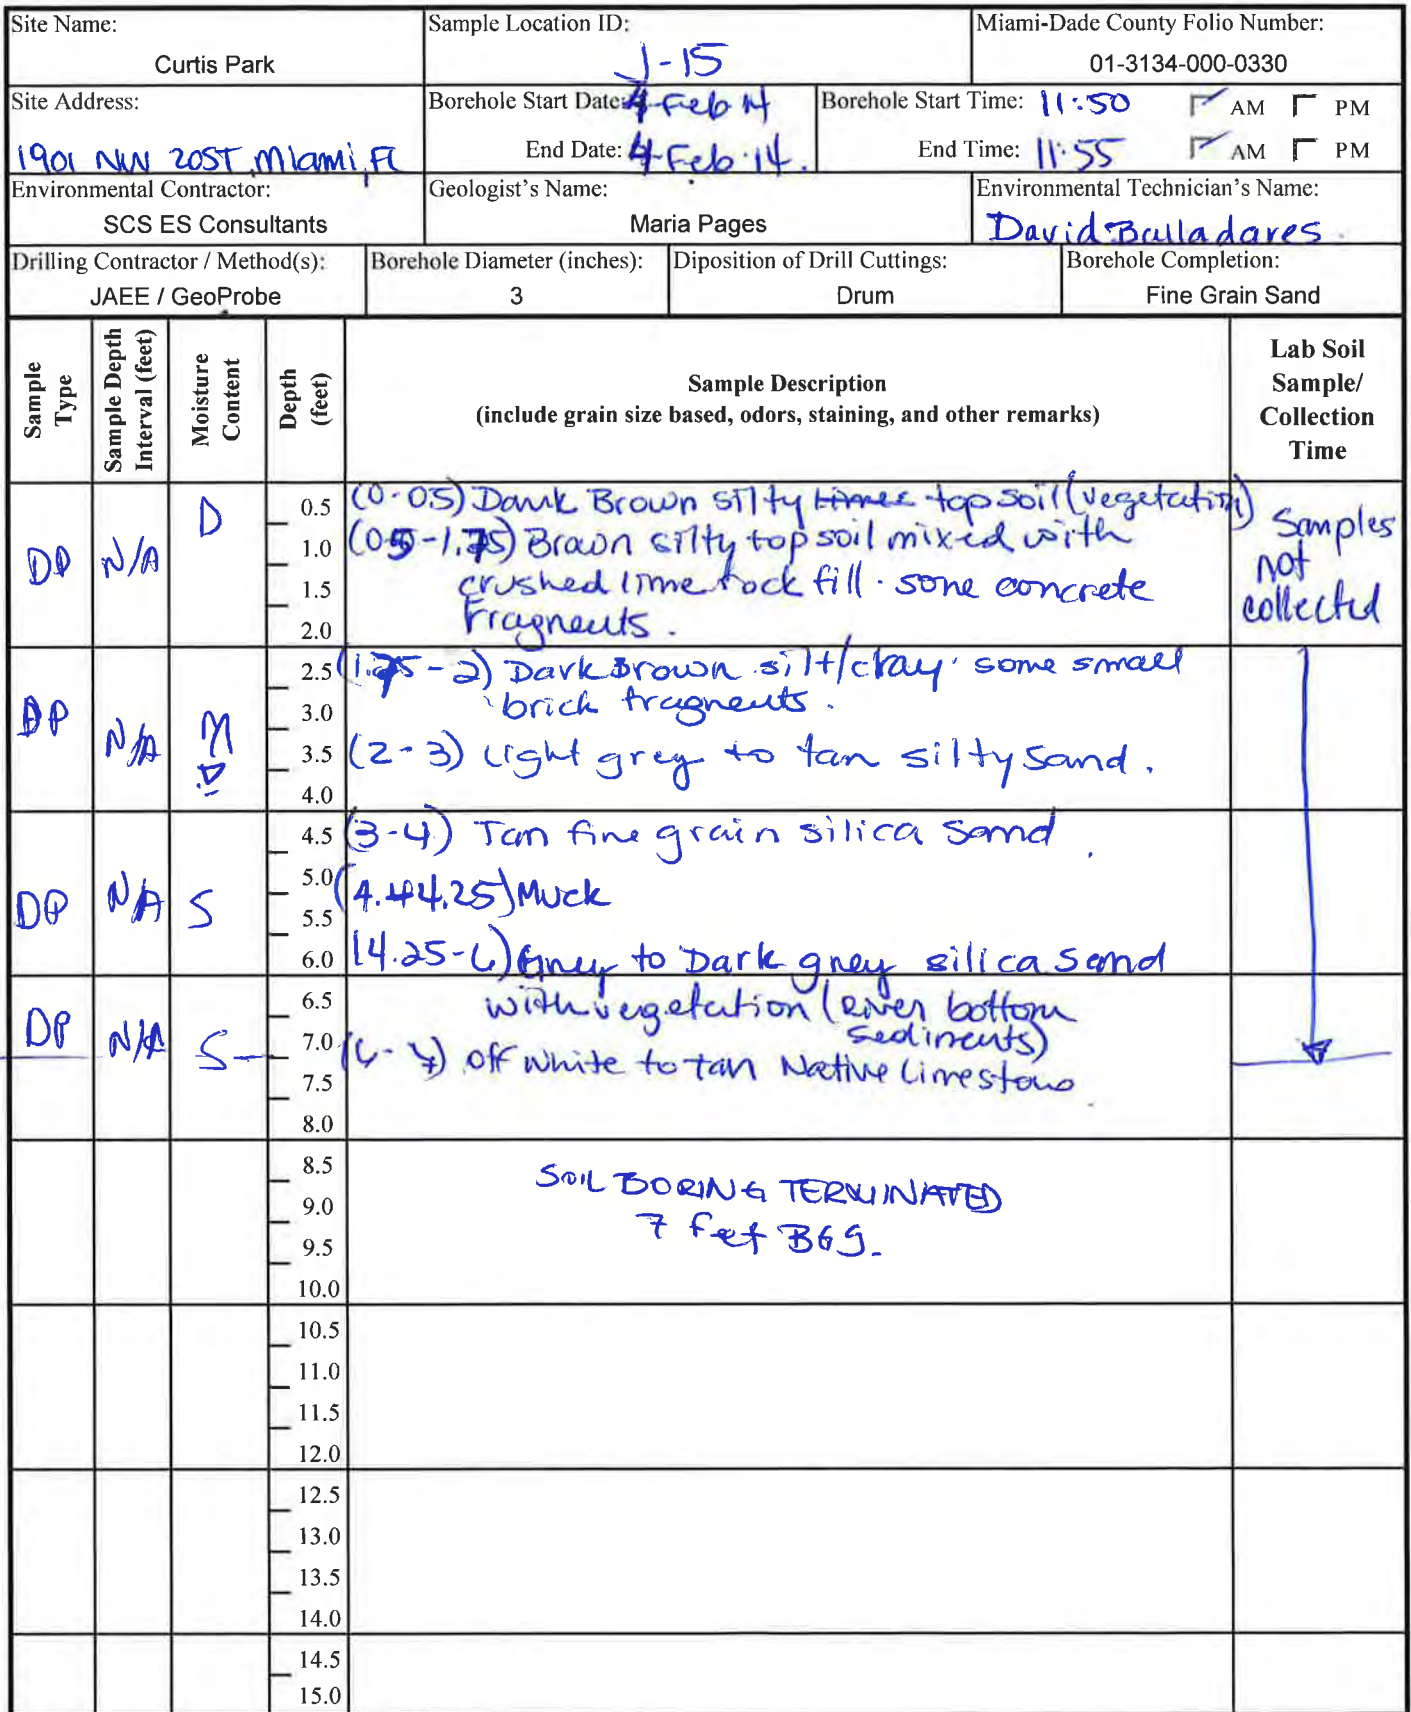 Site Name:
Curtis Park
Sample Location ID:
J-15
Miami-Dade County Folio Number:
01-3134-000-0330
Site Address:
1901 NW 20ST, Miami, FL
Borehole Start Date: 4-Feb 14
End Date: 4-Feb-14.
Borehole Start Time: 11:50 AM PM
End Time: 11:55 AM PM
Environmental Contractor:
SCS ES Consultants
Geologist's Name:
Maria Pages
Environmental Technician's Name:
David Balladares.
Drilling Contractor / Method(s):
JAEE / GeoProbe
Borehole Diameter (inches):
3
Diposition of Drill Cuttings:
Drum
Borehole Completion:
Fine Grain Sand
Sample Type
Sample Depth Interval (feet)
Moisture Content
Depth (feet)
Sample Description
(include grain size based, odors, staining, and other remarks)
Lab Soil
Sample/
Collection
Time
DP N/A D
0.5
1.0
1.5
2.0
(0-0.5) Dark Brown silty top soil (vegetation)
(0.5-1.75) Brown silty top soil mixed with
crushed lime rock fill. some concrete
fragments.
Samples
not
collected
DP N/A M
2.5
3.0
3.5
4.0
(1.75-2) Dark Brown silt/clay. some small
brick fragments.
(2-3) Light grey to tan silty sand.
DP N/A S
4.5
5.0
5.5
6.0
(3-4) Tan fine grain silica sand.
(4-4.25) Muck
(4.25-6) Grey to Dark grey silica sand
DP N/A S
6.5
7.0
7.5
8.0
with vegetation (River bottom
sediments)
(6-7) off white to tan Native Limestone
8.5
9.0
9.5
10.0
SOIL BORING TERMINATED
7 feet BGS.
10.5
11.0
11.5
12.0
12.5
13.0
13.5
14.0
14.5
15.0